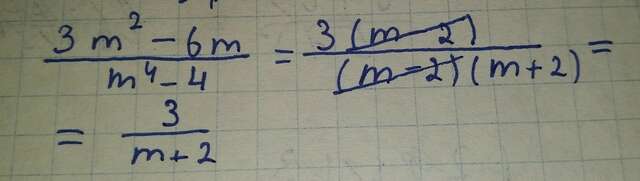 (3m² - 6m)/(m⁴ - 4) = (3(m - 2))/((m - 2)(m + 2)) =
= 3/(m + 2)